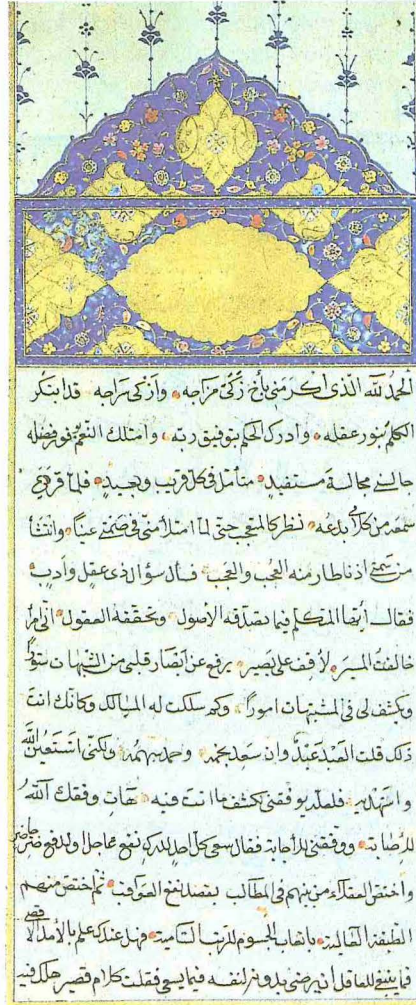 الحمد لله الذى اكرمنى بأخ زكىّ مزاجه وازكى سراجه قد ابتكر
الكلم بنور عقله وادرك الحكم بتوفيق ربه وامتلك النعم بوفور فضله
جالسنى مجالسة مستفيد متأمل فى كل قريب وبعيد فلما قرع
سمعه من كلامى بدعه نظر كالمتعجب حتى لما امتلأ منى فى صمتى عيناً وانتشأ
من سمتى اذنا طار منه العجب والعجب فسأل سؤال ذى عقل وأدب
فقال أيها المتكلم فيما تصدقه الأصول وتحققه العقول انى مذ
خالفت المسير لاقف على بصير يرفع عن ابصار قلبى من الشبهات ستوراً
ويكشف لى فى المشتبهات اموراً وكم سلكت له المسالك وكأنك انت
ذلك قلت العبد عبد وان سعد بجده وحمد بهمه ولكنى استعين الله
واستهديه فلعله يوفقنى لكشف ما انت فيه هات وفقك الله
للإصابه ووفقنى للأجابه فقال سعى كل احد لدركه نفع عاجل ولدفع ضر حاضر
واختص العقلاء من بينهم فى المطالب بقصد نفع العواقب ثم اختص منهم
الطبقة العاليه باتعاب الجسوم للرتب الساميه وهل عندك علم بالأمد الاقصى
فما ينبغى للعاقل ان يرضى بدونه لنفسه فيما يسعى فقلت كلام قصير هلك فيه